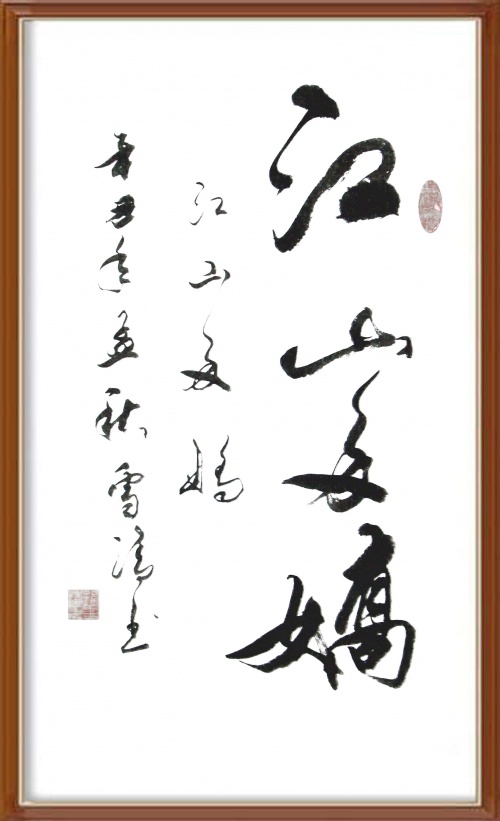 江山多娇
江山多娇
辛丑年孟秋雪涛书